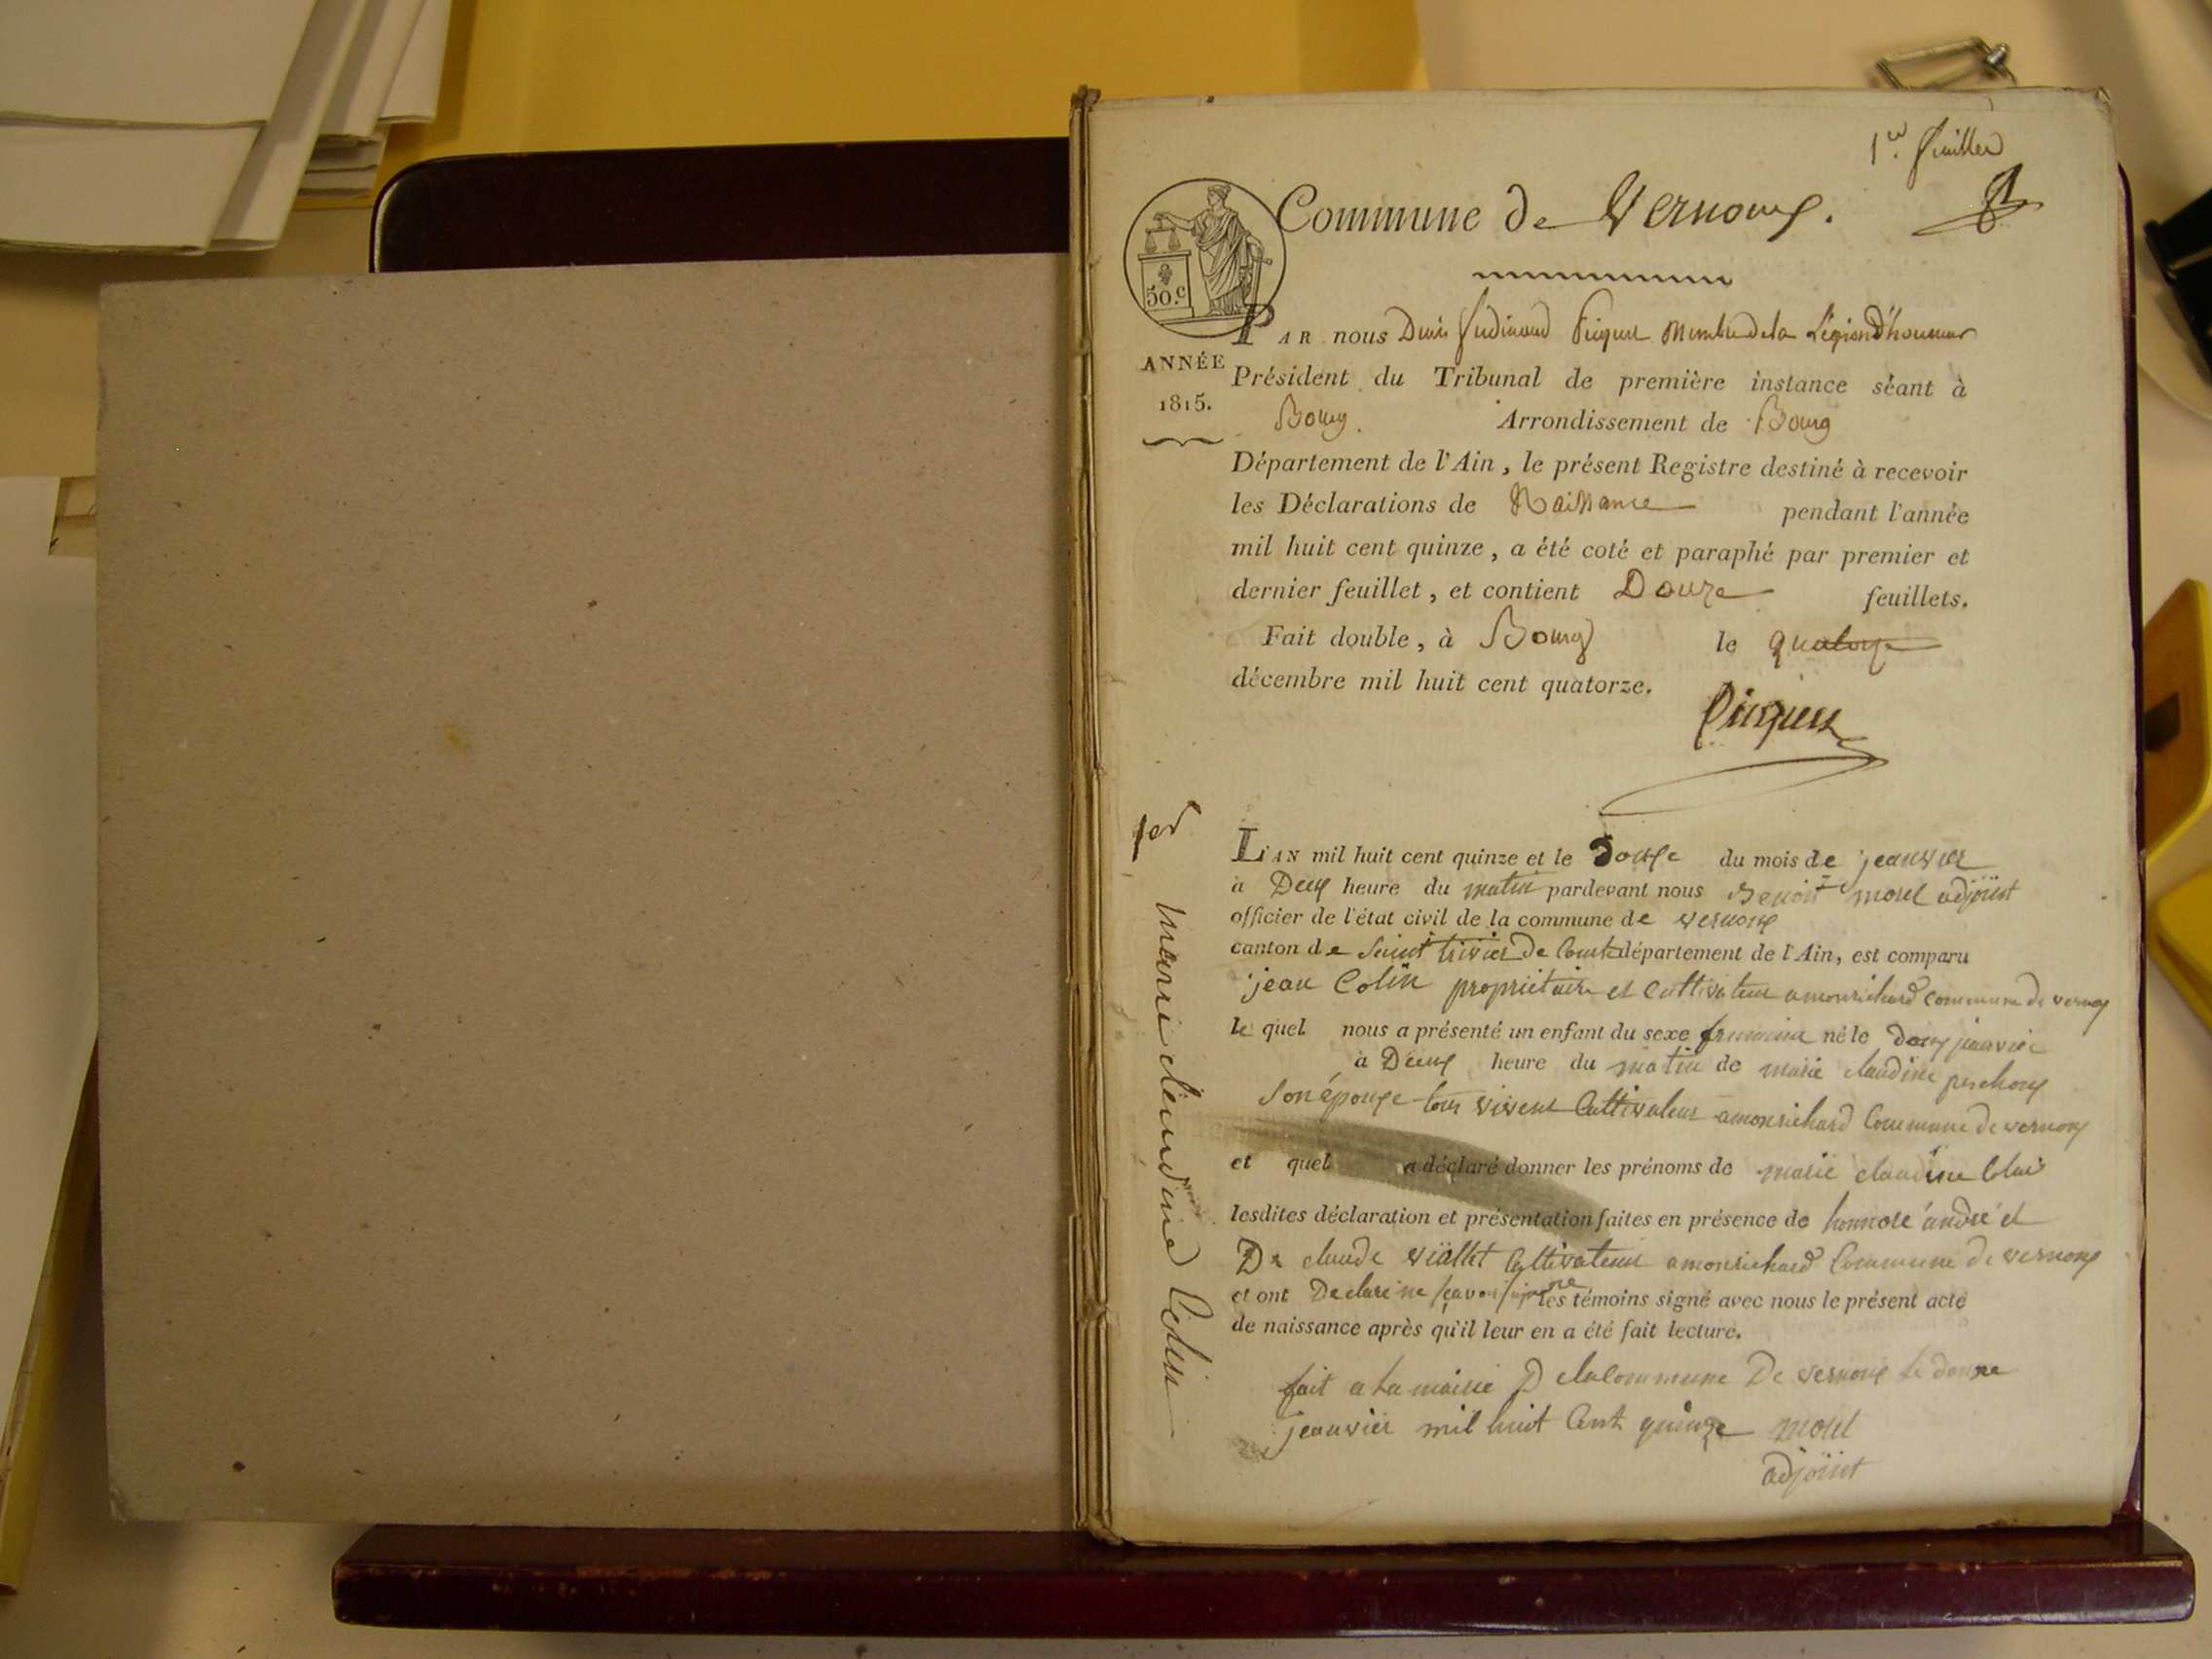 1er. feuillet
Commune de Vernoux.
50.c
ANNÉE
1815.
PAR nous Denis ferdinand Picquet Membre de la Légion d'honneur
Président du Tribunal de première instance séant à
Bourg. Arrondissement de Bourg
Département de l'Ain, le présent Registre destiné à recevoir
les Déclarations de Naissance pendant l'année
mil huit cent quinze, a été coté et paraphé par premier et
dernier feuillet, et contient Douze feuillets.
Fait double, à Bourg le quatorze
décembre mil huit cent quatorze.
Picquet
1er
marie claudine Colin
L'AN mil huit cent quinze et le douze du mois de jeanvier
à Deux heure du matin pardevant nous Benoit morel adjoint
officier de l'état civil de la commune de vernoux
canton de Saint trivier de Courtes département de l'Ain, est comparu
jean Colin proprietaire et Cultivateur a monrichard commune de vernoux
le quel nous a présenté un enfant du sexe né le douze janvier
à Deux heure du matin de marie claudine
Son épouse tous Cultivateur a monrichard Commune de vernoux
et quel a déclaré donner les prénoms de marie claudine
lesdites déclaration et présentation faites en présence de honnoré andré et
De claude viallet Cultivateur a monrichard Commune de vernoux
et ont Declaré ne scavoir signe les témoins signé avec nous le présent acte
de naissance après qu'il leur en a été fait lecture.
fait a la mairie D elacommune De vernoux le douze
jeanvier mil huit Cent quinze morel
adjoint